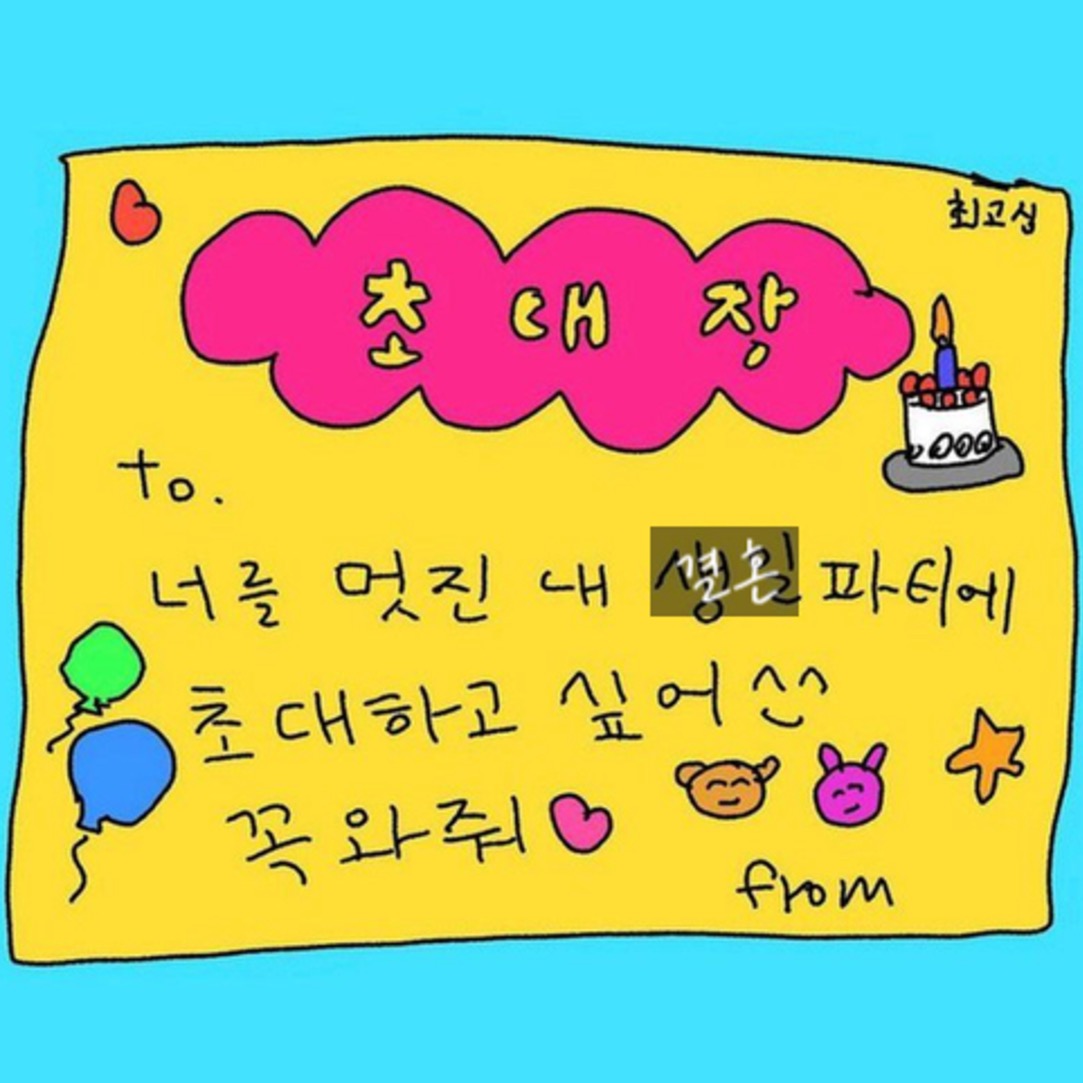 최고심
초대장
to.
너를 멋진 내 결혼파티에
초대하고 싶어^^
꼭 와줘
from